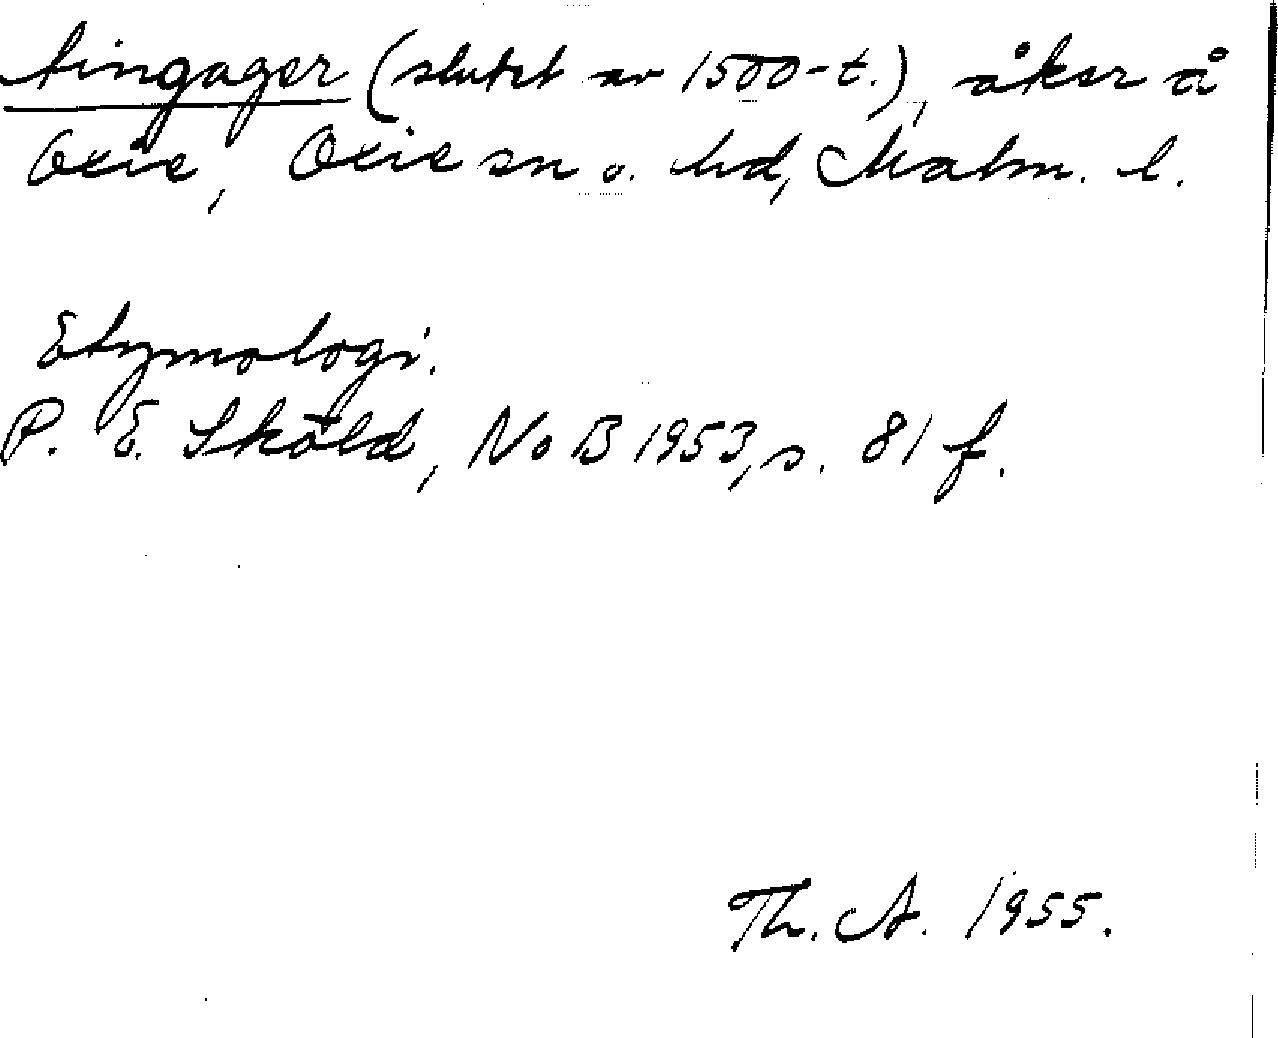 tingager (slutet av 1500-t.), åker å
Oxie, Oxie sn o. hd, Malm. l.
Etymologi.
P. E. Sköld, NoB 1953, s. 81 f.
Th. A. 1955.